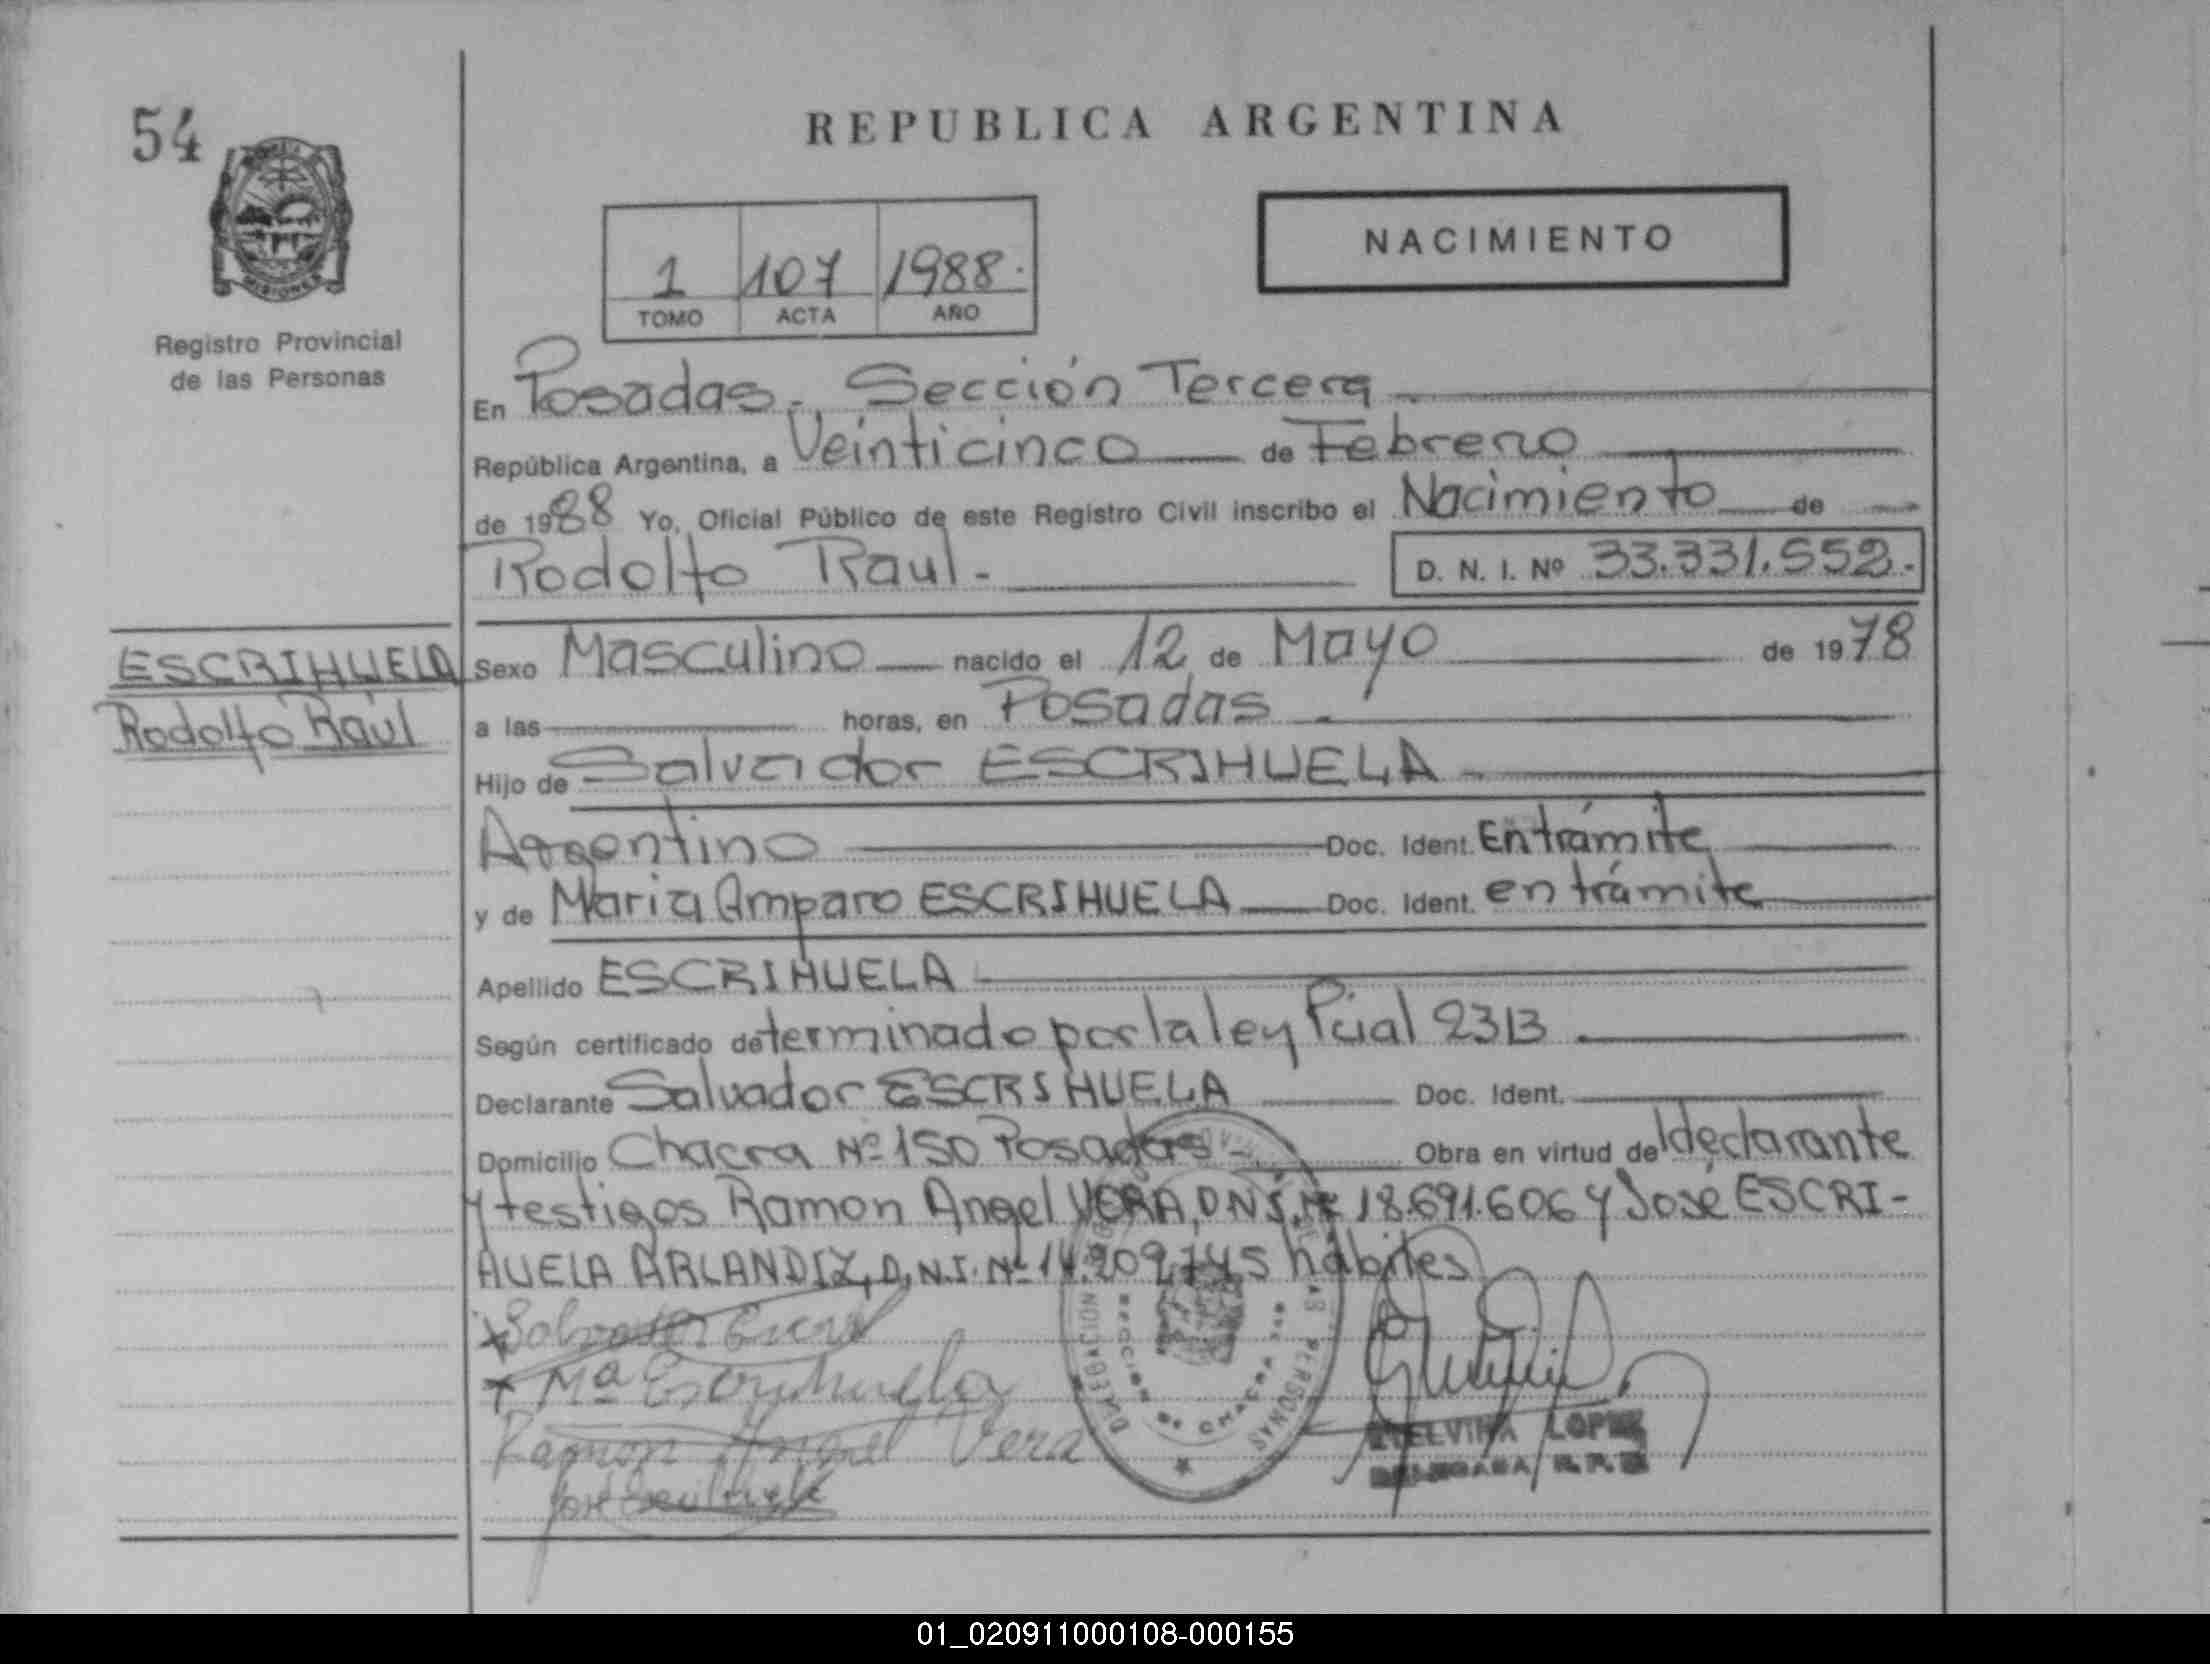 54
REPUBLICA ARGENTINA
MISIONES
Registro Provincial
de las Personas
1 107 1988.
TOMO ACTA AÑO
NACIMIENTO
En Posadas., Sección Tercera
República Argentina, a Veinticinco de Febrero
de 1988 Yo, Oficial Público de este Registro Civil inscribo el Nacimiento de
Rodolfo Raul.- D. N. I. Nº 33.331.552.-
ESCRIHUELA
Rodolfo Raúl
Sexo Masculino nacido el 12 de Mayo de 1978
a las horas, en Posadas
Hijo de Salvador ESCRIHUELA
Argentino Doc. Ident. En trámite
y de Maria Amparo ESCRIHUELA Doc. Ident. en trámite
Apellido ESCRIHUELA
Según certificado determinado por la ley Pcial 2313
Declarante Salvador ESCRIHUELA Doc. Ident.
Domicilio Chacra Nº 150 Posadas Obra en virtud del declarante
y testigos Ramon Angel VERA, D.N.I. Nº 18.691.606 y José ESCRI-
HUELA ARLANDIZ, D.N.I. Nº 14.209.745 hábiles
Mª Escrihuela
Ramon Angel Vera
DELEGACION SECCION CHACRA PERSONAS
ETELVINA LOPEZ
DELEGADA R.P.P.
01_020911000108-000155